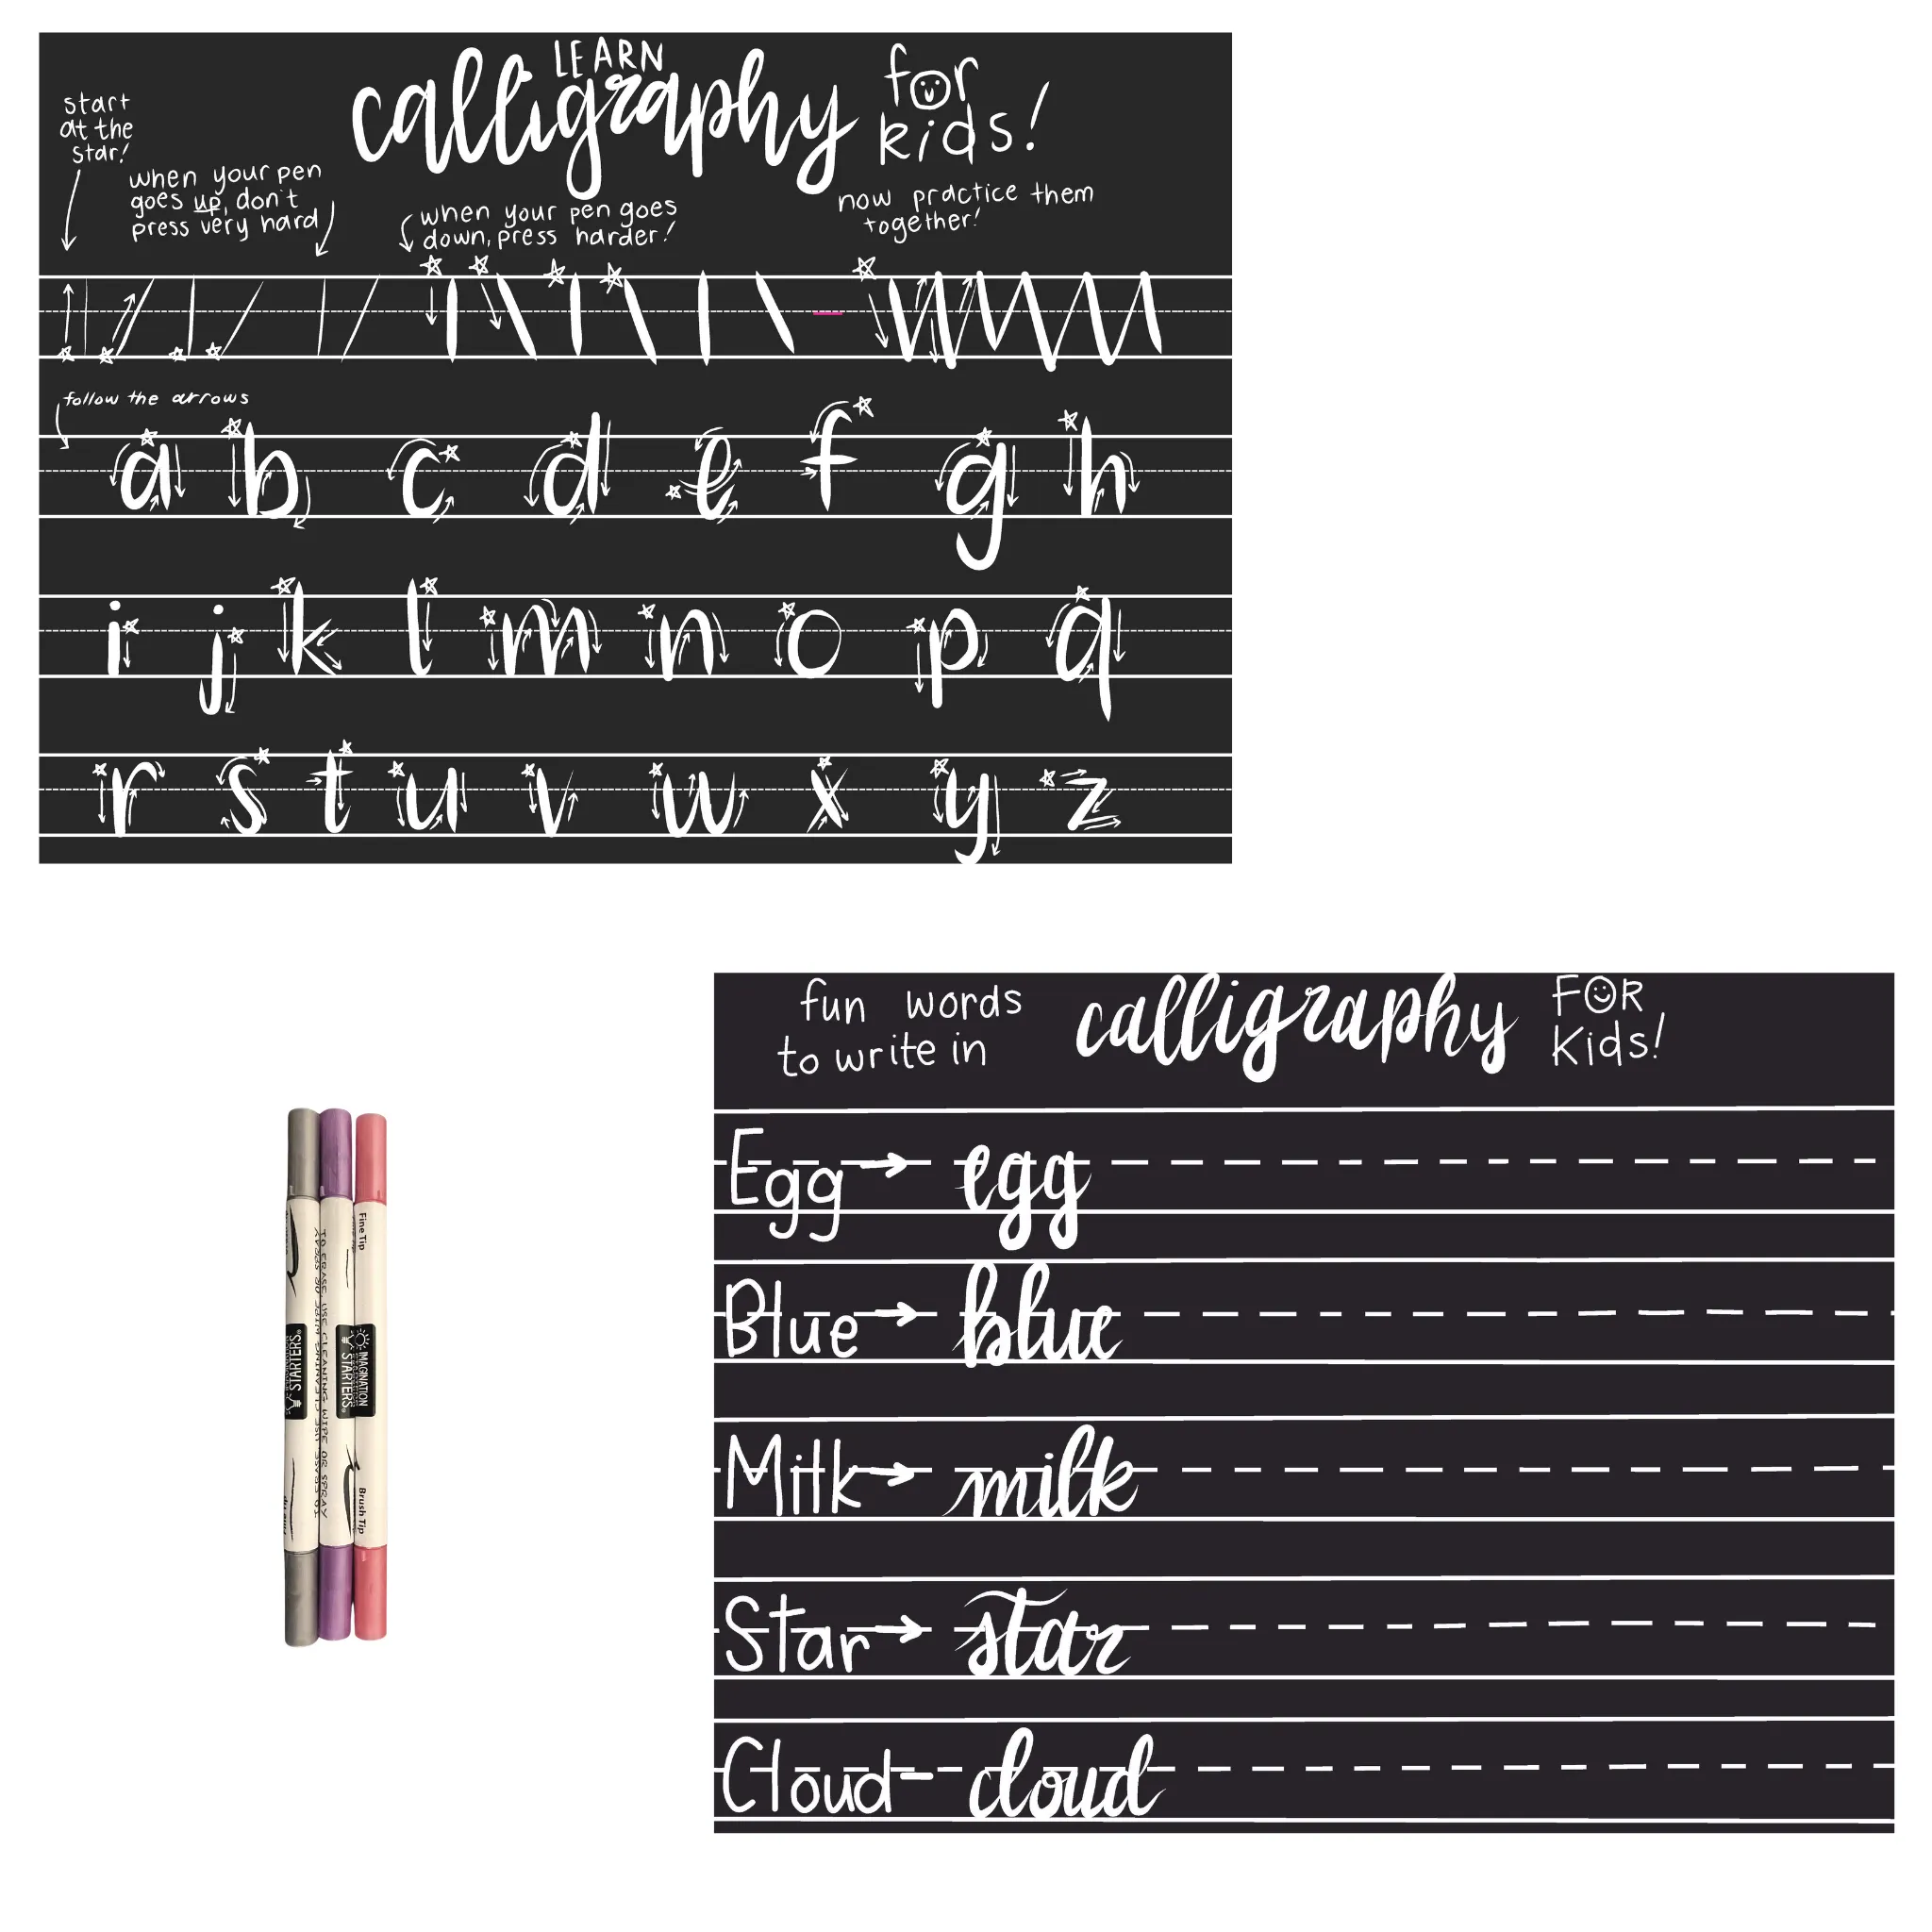 LEARN
calligraphy
for
kids!
start
at the
star!
when your pen
goes up, don't
press very hard
when your pen goes
down, press harder!
now practice them
together!
follow the arrows
a b c d e f g h
i j k l m n o p q
r s t u v w x y z
fun words
to write in
calligraphy
FOR
Kids!
Egg → egg
Blue → blue
Milk → milk
Star → star
Cloud - cloud
Fine Tip
IMAGINATION
STARTERS
STARTERS
STARTERS
TO ERASE, USE CLEANING WIPE OR SPRAY
Brush Tip